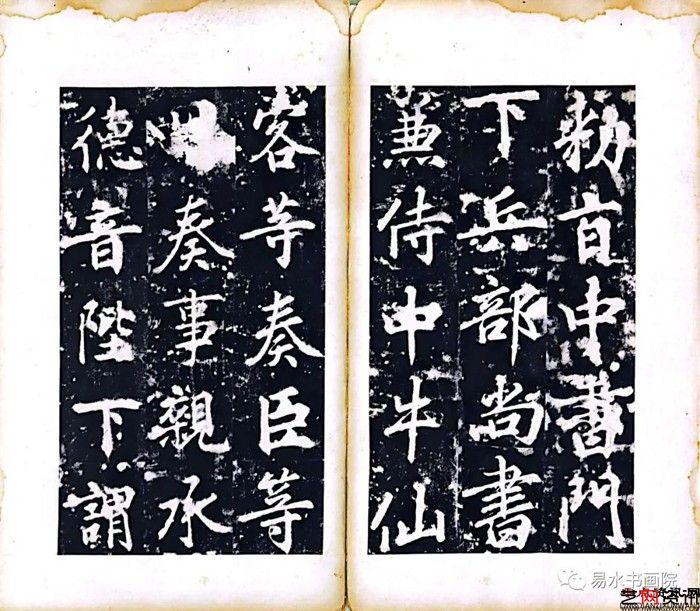 勅旨中書門
下兵部尚書
兼侍中牛仙
客等奏臣等
奏事親承
德音陛下謂
易水书画院